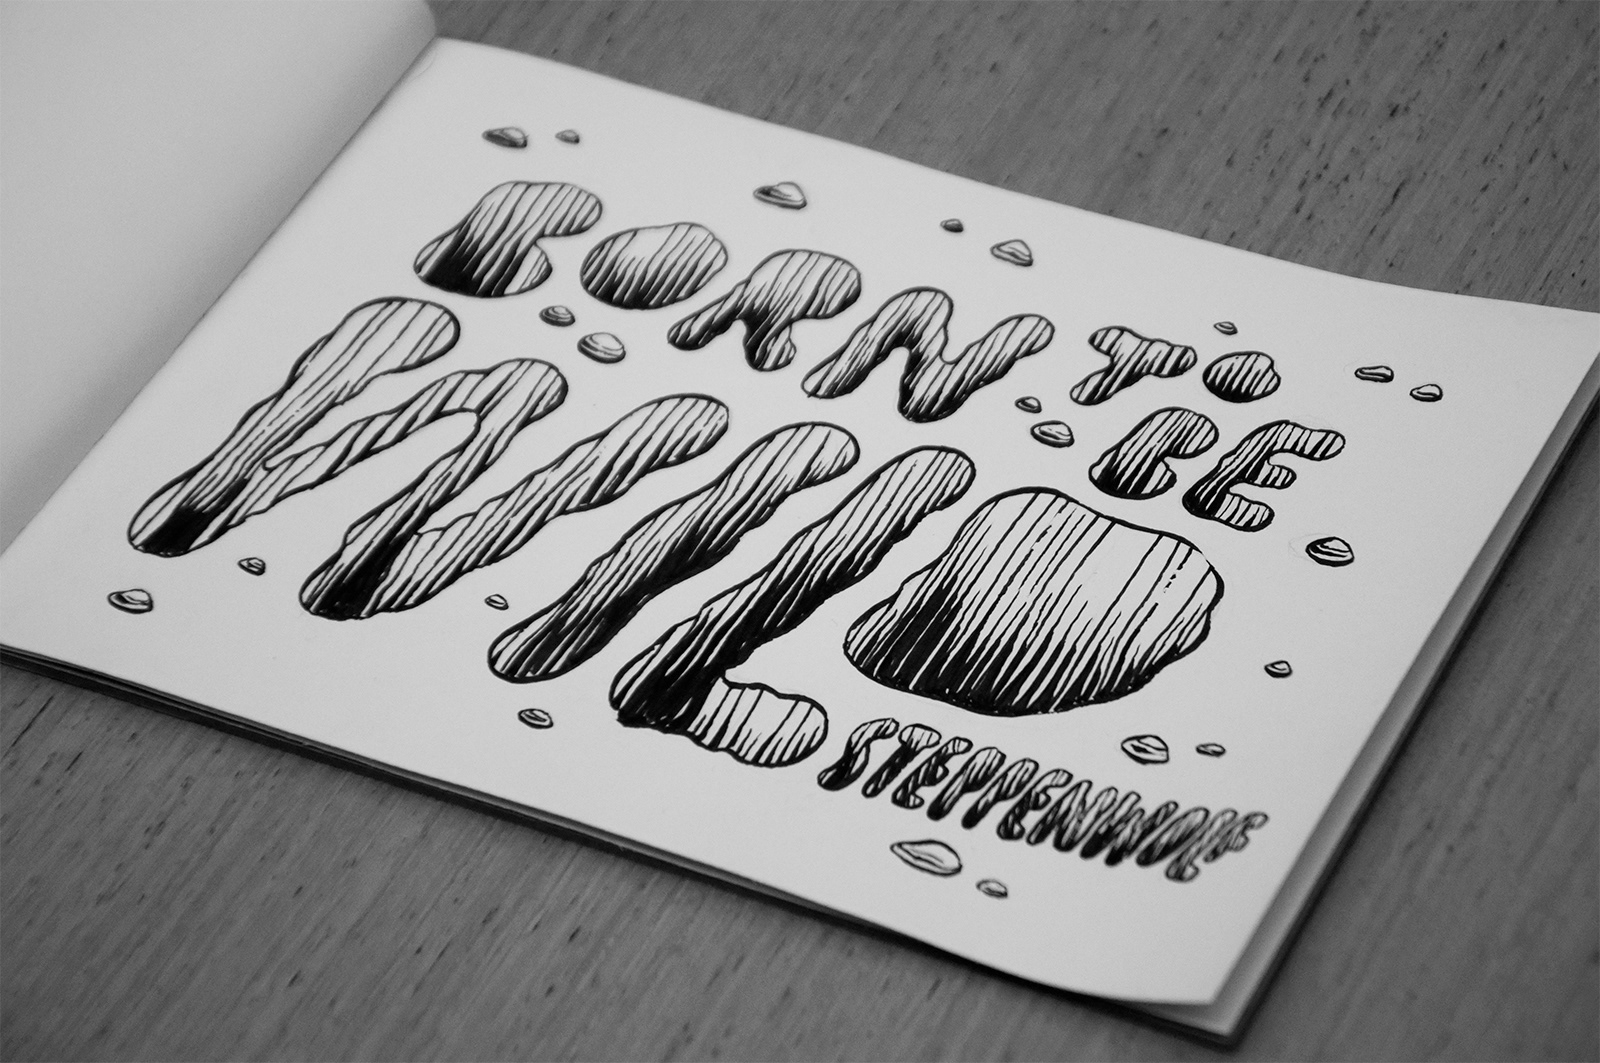 BORN TO
BE
WILD
STEPPENWOLF